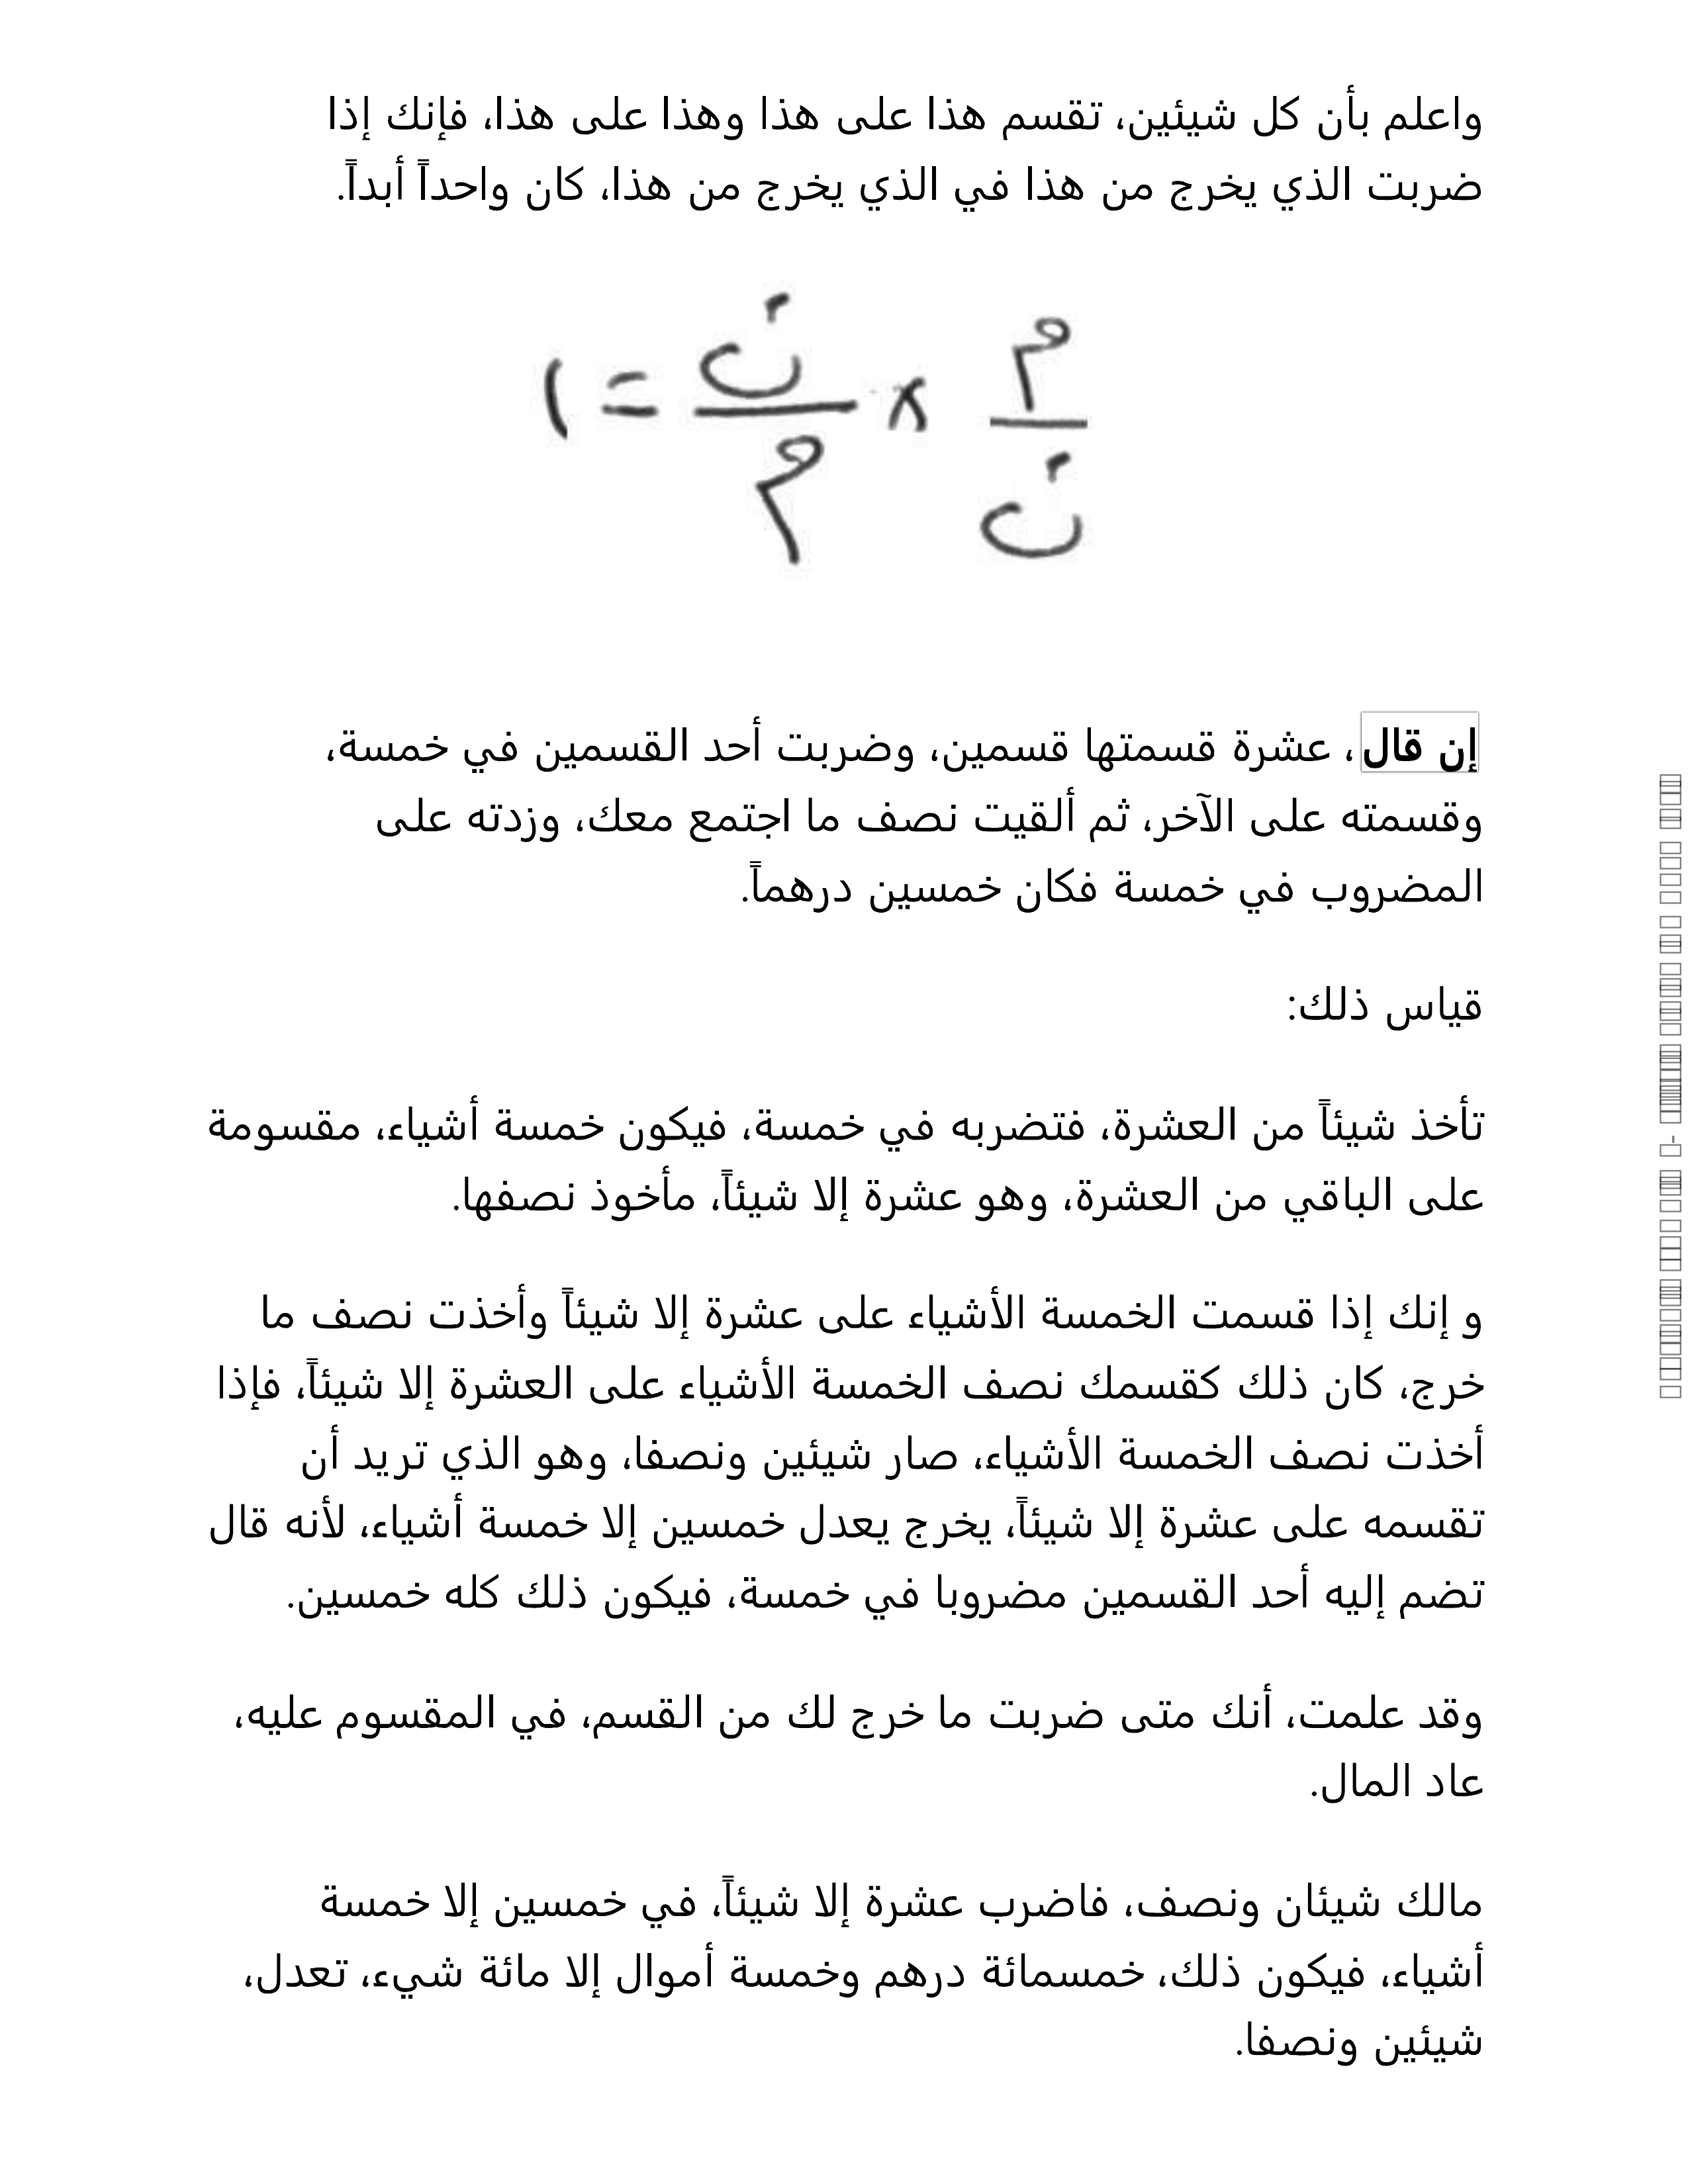 واعلم بأن كل شيئين، تقسم هذا على هذا وهذا على هذا، فإنك إذا
ضربت الذي يخرج من هذا في الذي يخرج من هذا، كان واحداً أبداً.
م/ن × ن/م = ١
إن قال، عشرة قسمتها قسمين، وضربت أحد القسمين في خمسة،
وقسمته على الآخر، ثم ألقيت نصف ما اجتمع معك، وزدته على
المضروب في خمسة فكان خمسين درهماً.
قياس ذلك:
تأخذ شيئاً من العشرة، فتضربه في خمسة، فيكون خمسة أشياء، مقسومة
على الباقي من العشرة، وهو عشرة إلا شيئاً، مأخوذ نصفها.
و إنك إذا قسمت الخمسة الأشياء على عشرة إلا شيئاً وأخذت نصف ما
خرج، كان ذلك كقسمك نصف الخمسة الأشياء على العشرة إلا شيئاً، فإذا
أخذت نصف الخمسة الأشياء، صار شيئين ونصفا، وهو الذي تريد أن
تقسمه على عشرة إلا شيئاً، يخرج يعدل خمسين إلا خمسة أشياء، لأنه قال
تضم إليه أحد القسمين مضروبا في خمسة، فيكون ذلك كله خمسين.
وقد علمت، أنك متى ضربت ما خرج لك من القسم، في المقسوم عليه،
عاد المال.
مالك شيئان ونصف، فاضرب عشرة إلا شيئاً، في خمسين إلا خمسة
أشياء، فيكون ذلك، خمسمائة درهم وخمسة أموال إلا مائة شيء، تعدل،
شيئين ونصفا.